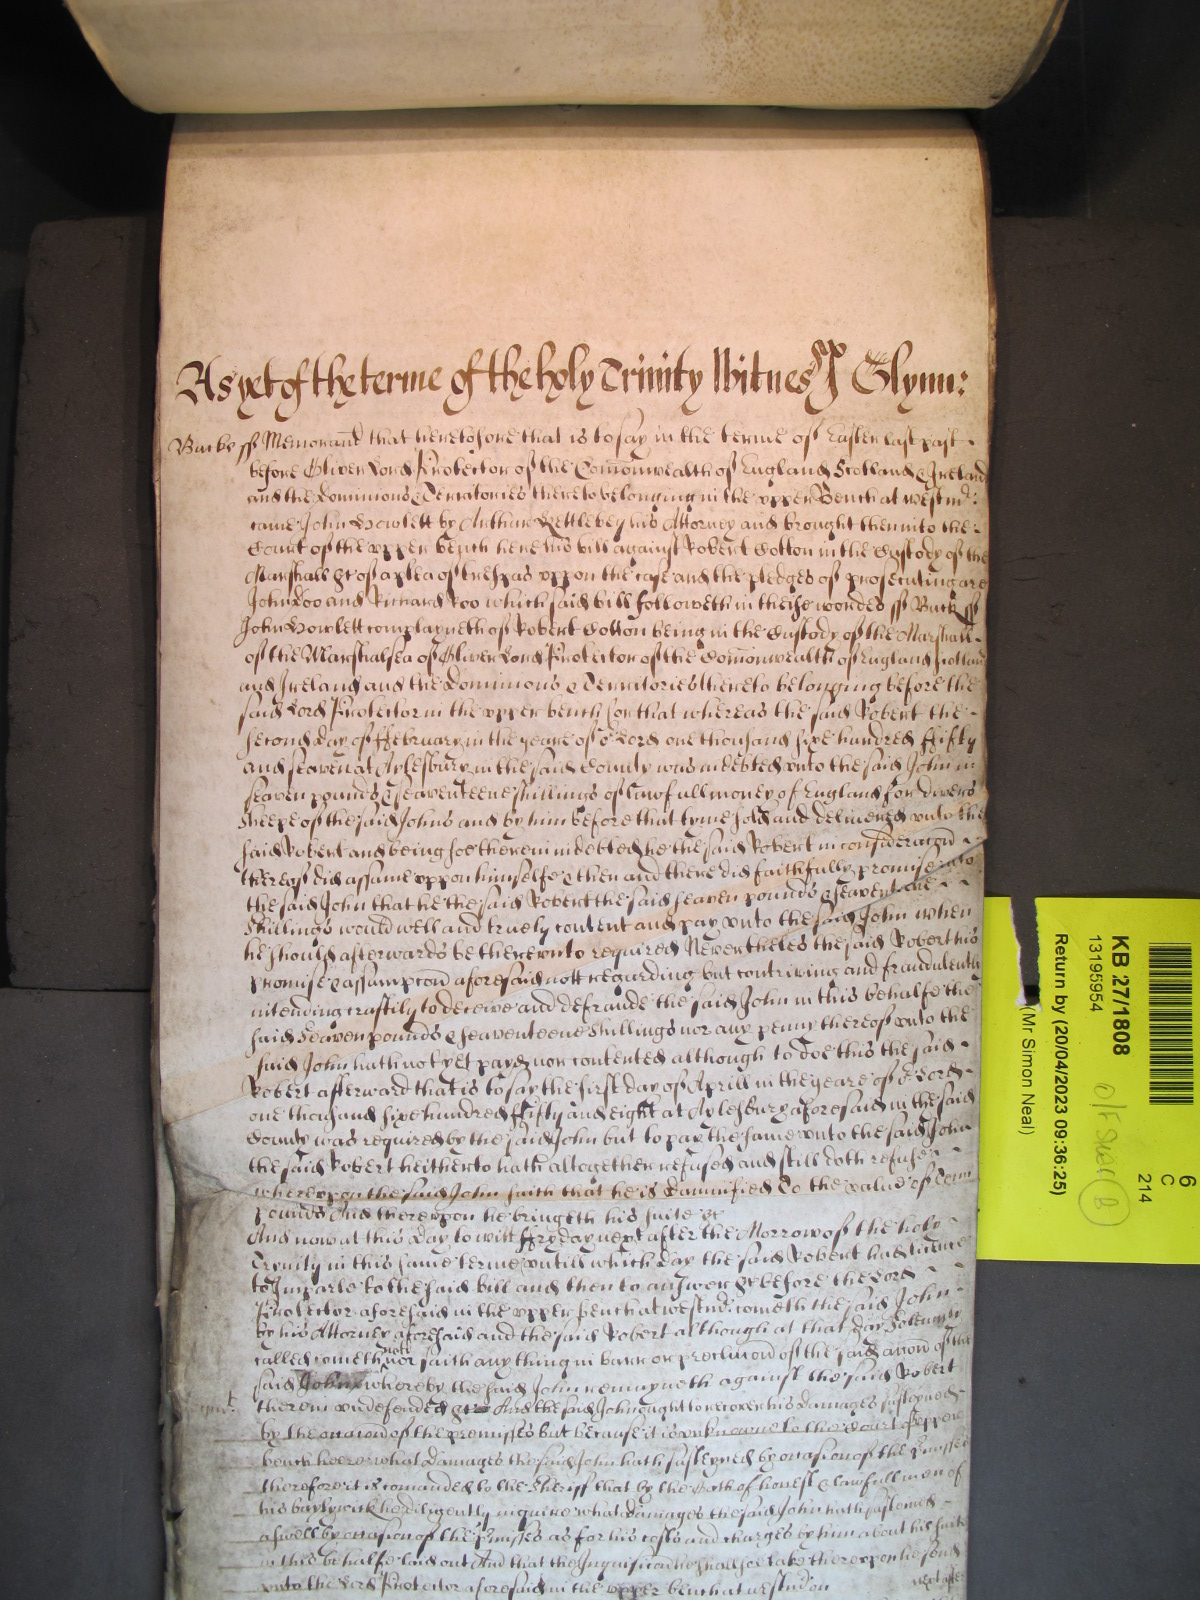 As yet of the terme of the holy Trinity Witnes J Glynn:
Bucks ss Memorand that heretofore that is to say in the terme of Easter last past
before Oliver Lord Protector of the Comonwealth of England Scotland & Ireland
and the Dominions & Terratories thereto belonging in the upper Bench at Westmr:
came John Howlett by Arthur Nettlebey his Attorney and brought then into the
Court of the upper bench here his bill against Robert Cotton in the Custody of the
Marshall &c of a plea of trespas uppon the case and the pledges of prosecuting are
John Doo and Richard Roo which said bill followeth in theise wordes ss Buck ss
John Howlett complayneth of Robert Cotton being in the Custody of the Marshall
of the Marshalsea of Oliver Lord Protector of the Comonwealth of England Scotland
and Ireland and the Dominions & Territories thereto belonging before the
said Lord Protector in the upper bench for that whereas the said Robert the
second day of ffebruary in the yeare of or Lord one thousand sixe hundred ffifty
and seaven at Aylesbury in the said County was indebted unto the said John in
seaven pounds & seaventeene shillings of lawfull money of England for divers
sheepe of the said Johns and by him before that tyme sold and delivered unto the
said Robert and being soe therein indebted he the said Robert in consideracon
thereof did assume uppon himselfe & then and there did faithfully promise unto
the said John that he the said Robert the said seaven pounds & seaventeene
shillings would well and truely content and pay unto the said John when
he should afterwards be thereunto required Nevertheles the said Robert his
promise & assumpcon aforesaid nott regarding but contriving and fraudulently
intending craftily to deceive and defraude the said John in this behalfe the
said Seaven pounds & seaventeene Shillings nor any penny thereof unto the
said John hath not yet payd nor contented although to doe this the said
Robert afterward that is to say the first day of Aprill in the yeare of or Lord
one thousand sixe hundred ffifty and eight at Aylesbury aforesaid in the said
County was required by the said John but to pay the same unto the said John
the said Robert heitherto hath altogether refused and still doth refuse
whereupon the said John saith that he is damnified To the value of Tenn
pounds And thereupon he bringeth his suite &c
And now at this day to witt ffryday next after the Morrow of the holy
Trynity in this same terme untill which day the said Robert had licence
to Imparle to the said bill and then to answer &c before the Lord
Protector aforesaid in the upper bench at Westmr: cometh the said John
by his Attorney aforesaid and the said Robert although at that day Solemnly
called cometh nott nor saith any thing in barr or preclucon of the said accon of the
said John whereby the said John remayneth against the said Robert
therein undefended &c And the said John ought to recover his damages susteyned
by the occacon of the premisses but because it is unknowne to the Court of upper
bench here what damages the said John hath susteyned by occasion of the premisses
therefore it is comanded to the Sheriff that by the Oath of honest & lawfull men of
his baylywick he diligently inquire what damages the said John hath susteined
aswell by occasion of the premisses as for his costs and charges by him about his suite
in this behalfe laid out And that the Inquisicon he shall soe take thereupon he send
unto the Lord Protector aforesaid in the upper bench at Westm on next after
6
C
214
KB 27/1808
13195954
O/F Shelf (B)
Return by (20/04/2023 09:36:25)
(Mr Simon Neal)